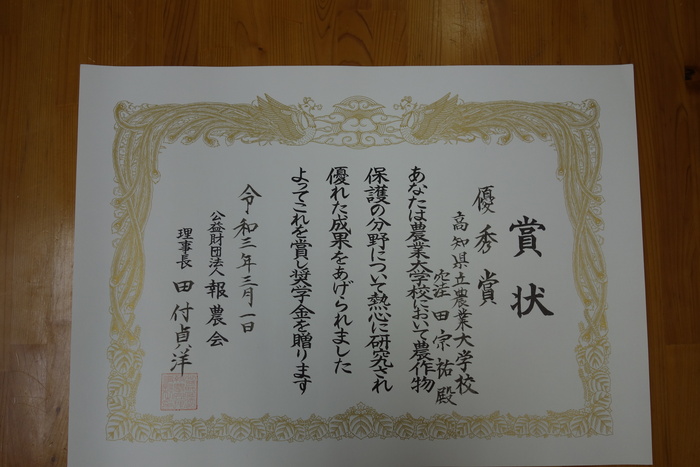 賞状
優秀賞
高知県立農業大学校
窪田宗祐殿
あなたは農業大学校において農作物
保護の分野について熱心に研究され
優れた成果をあげられました
よってこれを賞し奨学金を贈ります
令和三年三月一日
公益財団法人 報農会
理事長 田付貞洋